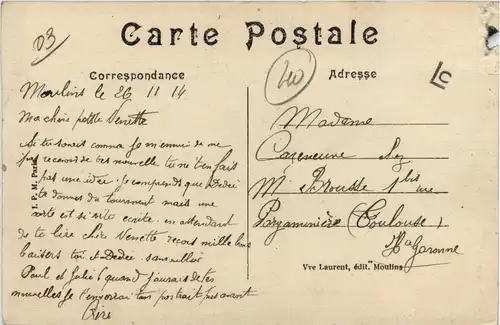 03
Carte Postale
Correspondance
Adresse
40
LC
Moulins le 26 11 14
Ma chère petite Venette
Si tu savais comme je m'ennui de ne
pas recevoir de tes nouvelle tu ne t'en fais
pas une idée je comprends que Dédée
te donnes du tourment mais une
carte est si vite ecrite en attendant
de te lire chère Venette recois mille bons
baisers toi et Dédée sans oublier
Paul et Julie quand j'aurais de tes
nouvelles je t'enverrai ton portrait pas avant
Madame
Cazeneuve chez
M Brousse
Pargaminière (Toulouse)
Hte Garonne
J. P. M. Paris
Vve Laurent, édit. Moulins